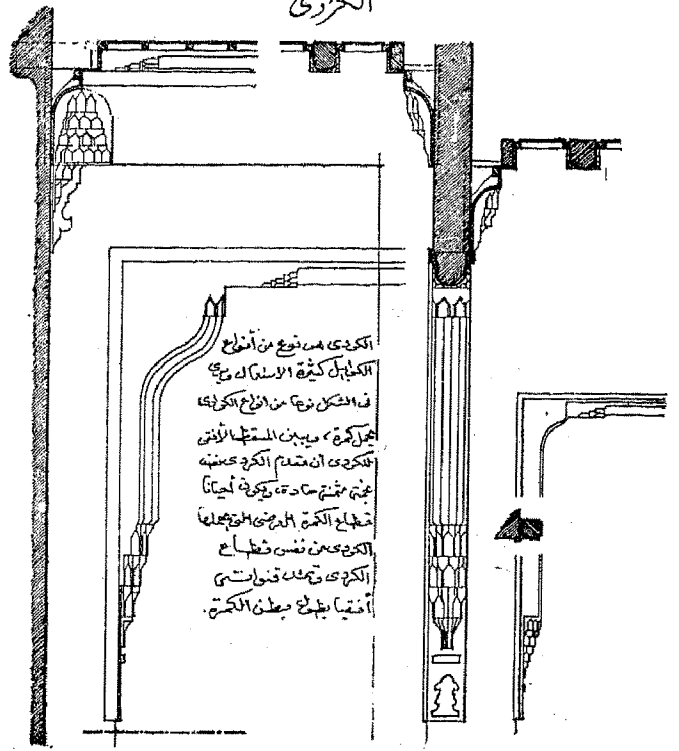 الكردى
الكردى هو نوع من أنواع
الكوابيل كثيرة الاستعمال ويرى
فى الشكل نوعا من أنواع الكوابى
يحمل كمرة، ويبين المسقط الأفقى
للكردى أن مقدم الكردى
مثمنة عادة، ويكون أحيانا
قطاع الكمرة العرضى التى يحملها
الكردى من نفس قطاع
الكردى قنوات
أفقيا بطول بطن الكمرة.